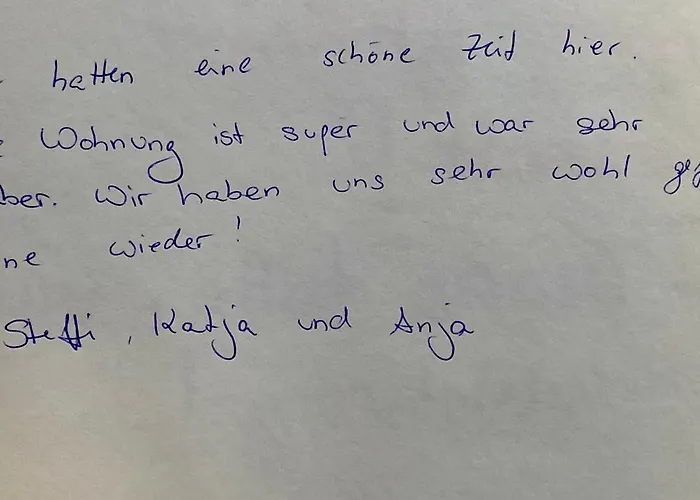 hatten eine schöne Zeit hier.
Wohnung ist super und war sehr
ber. Wir haben uns sehr wohl
ne wieder!
Steffi, Katja und Anja